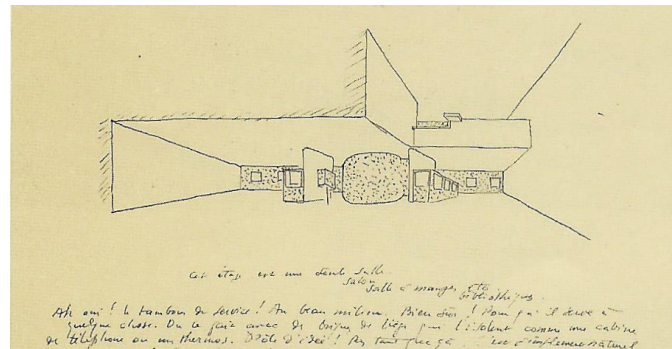 Cet étage est une seule salle.
Salon
Salle à manger etc
bibliothèque.
Ah oui ! le tambour de service ! Au beau milieu. Bien sûr ! Pour qu'il serve à
quelque chose. On le fait avec de briques de liège qui l'isolent comme une cabine
de téléphone ou un thermos. Drôle d'idée !